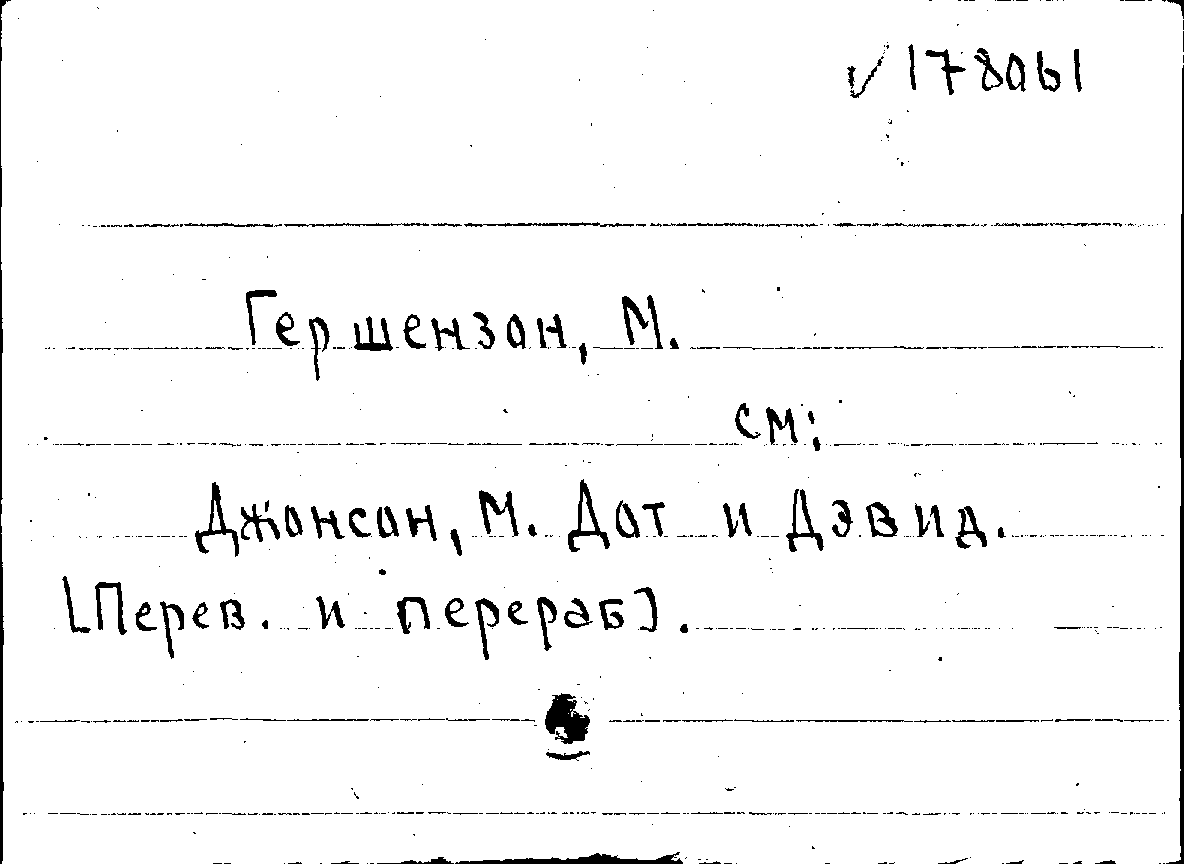 ✓178061
Гершензон, М.
см:
Джонсон, М. Дот и Дэвид.
[Перев. и перераб].